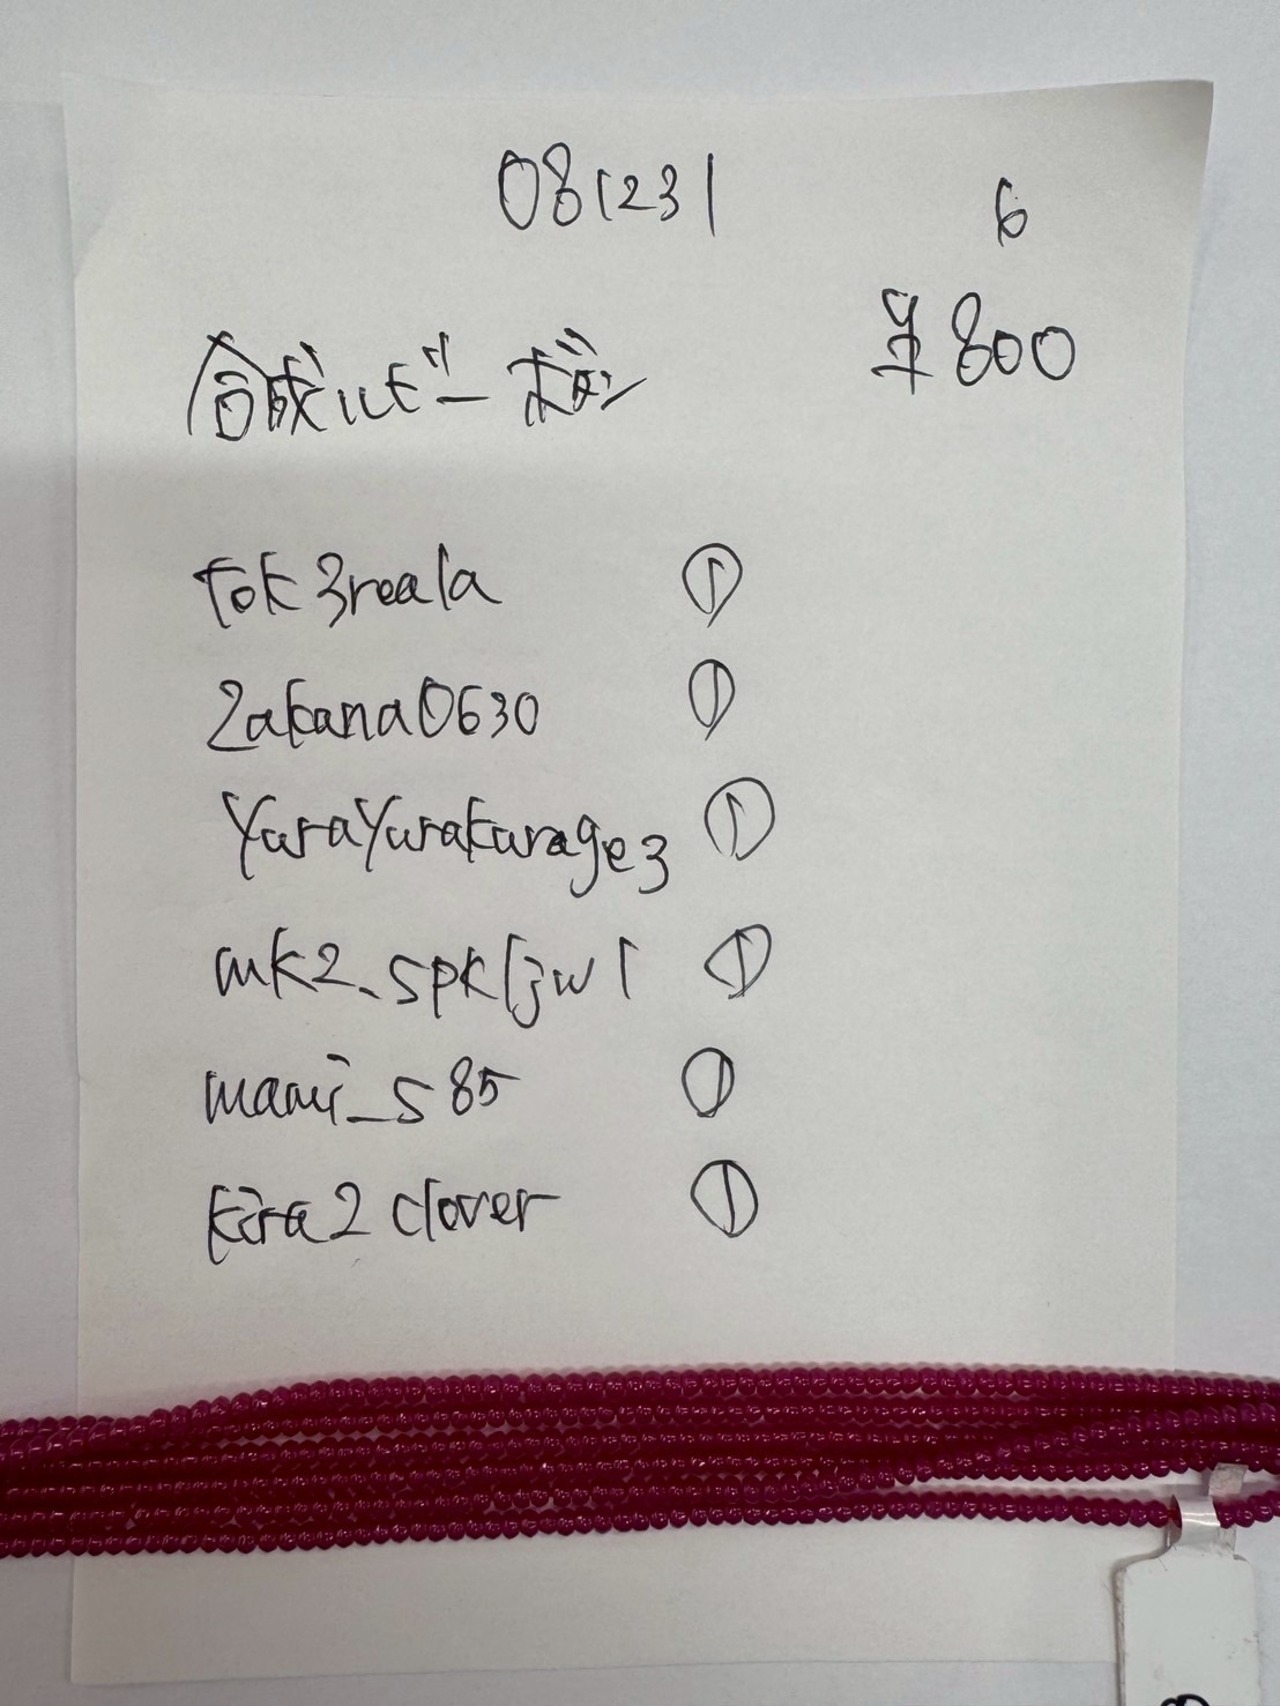 081231
6
合成ルビー ボタン
¥800
tok3reala ①
Zakana0630 ①
YuraYurakurage3 ①
mk2_spkljw1 ①
mami_s85 ①
kira2clover ①